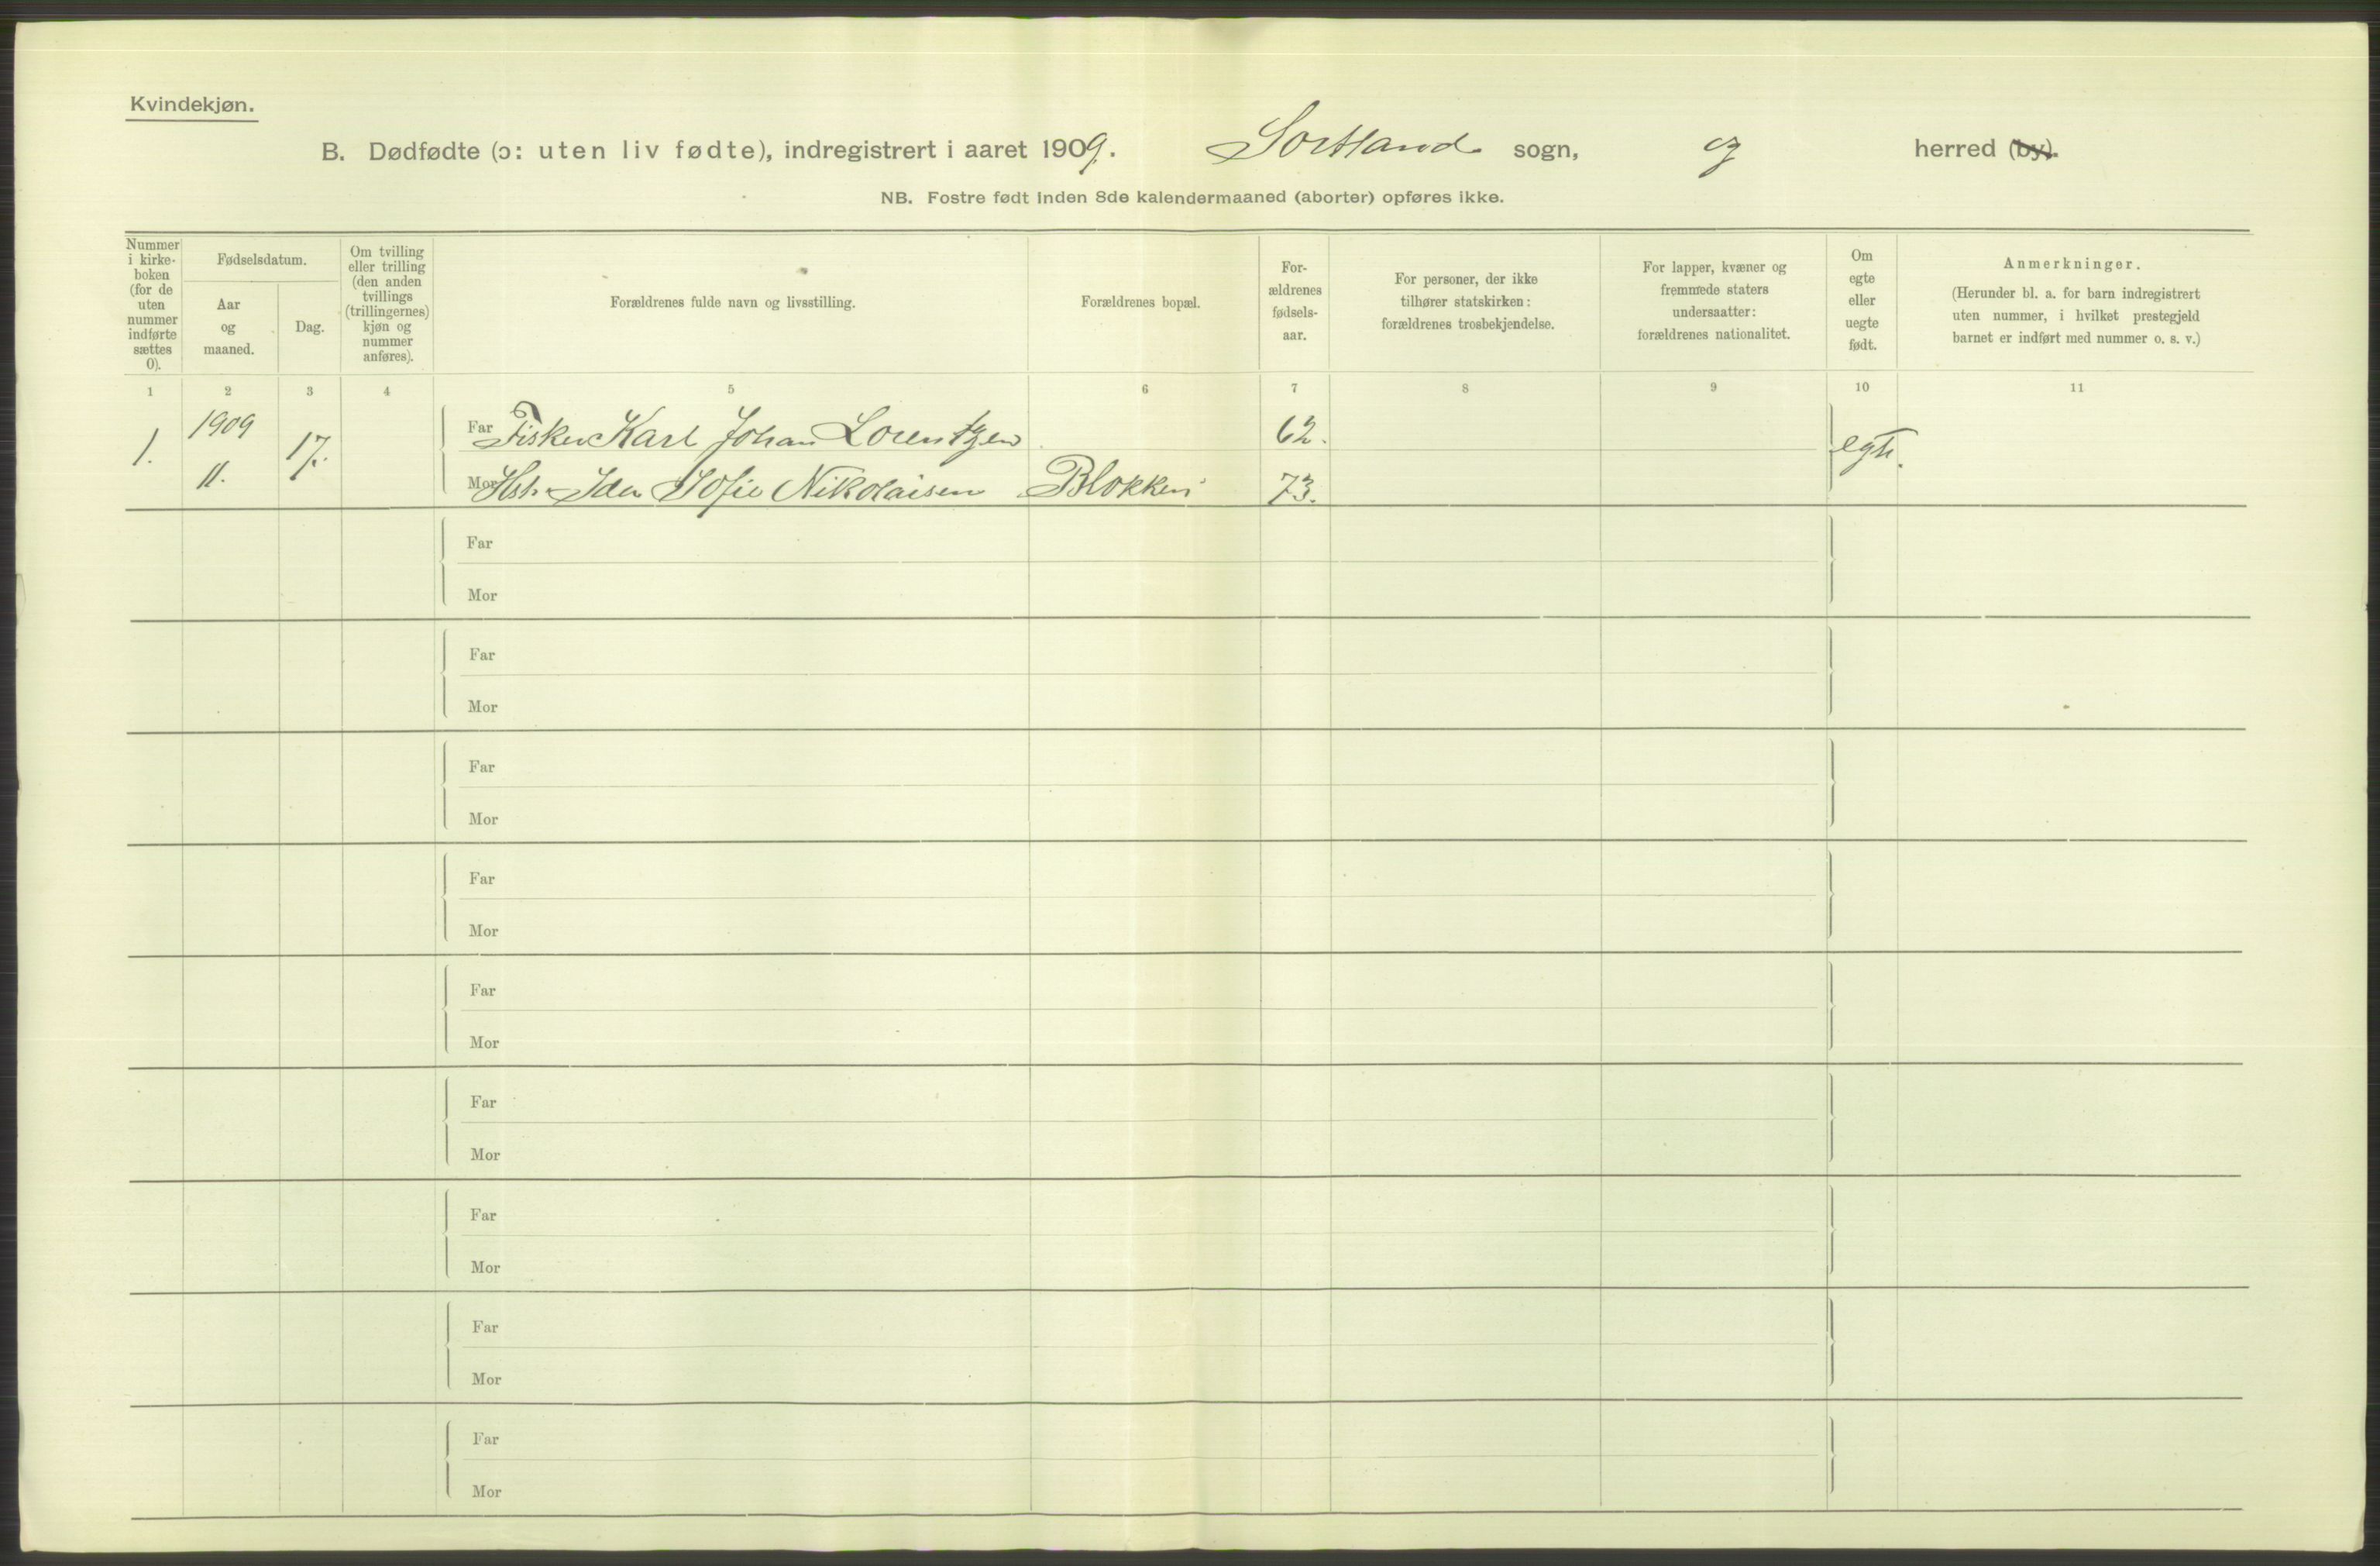 Kvindekjøn.
B. Dødfødte (ɔ: uten liv fødte), indregistrert i aaret 1909. Sortland sogn, og herred (by).
NB. Fostre født inden 8de kalendermaaned (aborter) opføres ikke.
Nummer i kirke-boken (for de uten nummer indførte sættes 0).
Fødselsdatum.
Aar og maaned.
Dag.
Om tvilling eller trilling (den anden tvillings (trillingernes) kjøn og nummer anføres).
Forældrenes fulde navn og livsstilling.
Forældrenes bopæl.
For-ældrenes fødsels-aar.
For personer, der ikke tilhører statskirken: forældrenes trosbekjendelse.
For lapper, kvæner og fremmede staters undersaatter: forældrenes nationalitet.
Om egte eller uegte født.
Anmerkninger.
(Herunder bl. a. for barn indregistrert uten nummer, i hvilket prestegjeld barnet er indført med nummer o. s. v.)
1 2 3 4 5 6 7 8 9 10 11
1. 1909 11. 17. Far Fisker Karl Johan Lorentzen 62. egte.
Mor Hst. Ida Sofie Nikolaisen Blokken 73.
Far
Mor
Far
Mor
Far
Mor
Far
Mor
Far
Mor
Far
Mor
Far
Mor
Far
Mor
Far
Mor